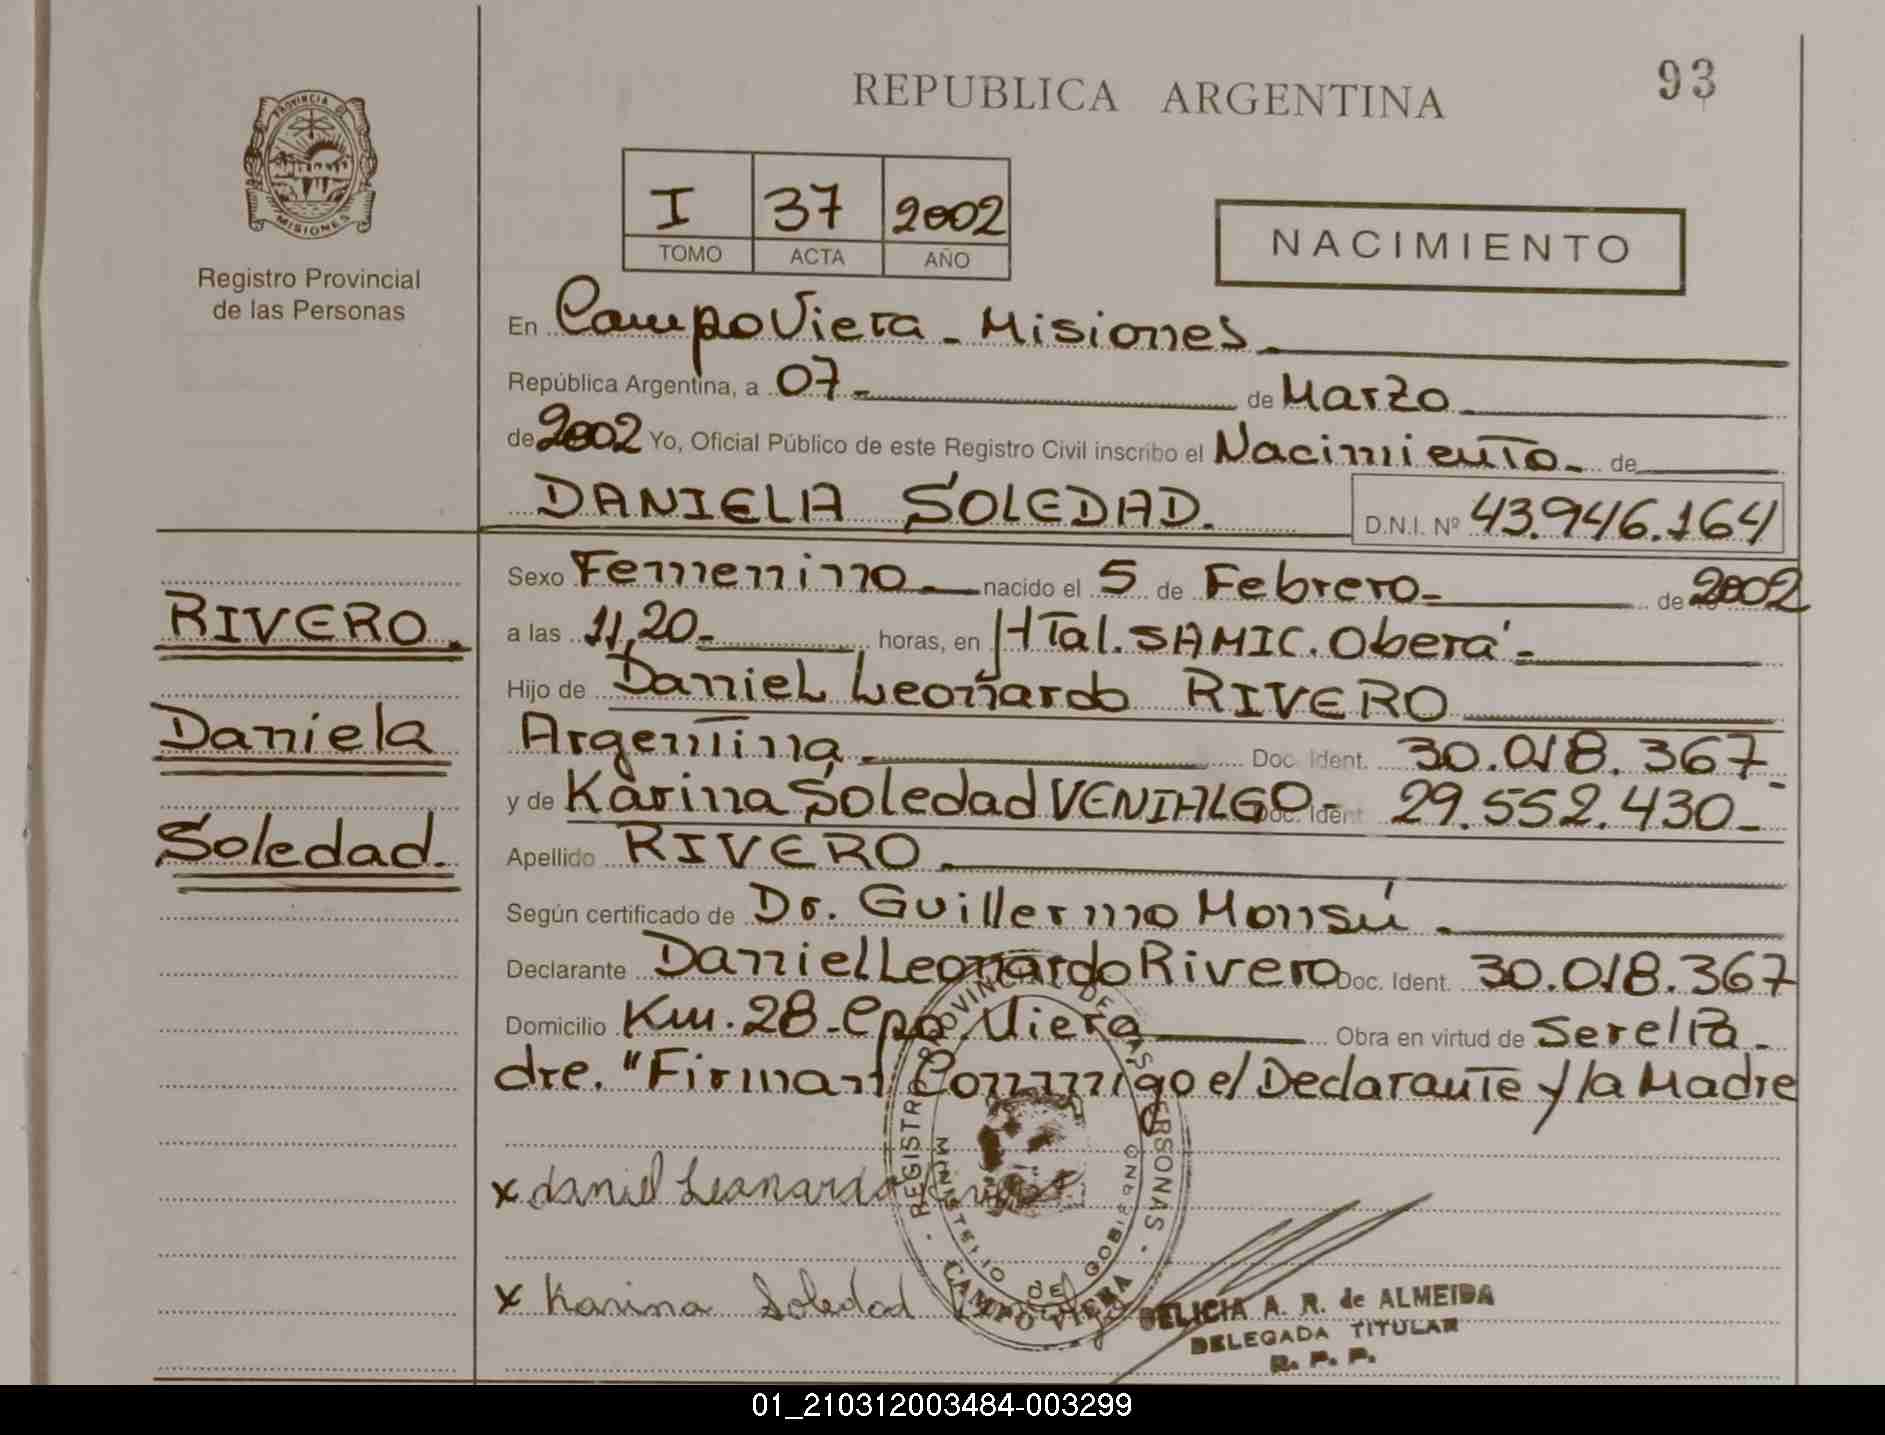 REPUBLICA ARGENTINA
93
PROVINCIA DE MISIONES
Registro Provincial
de las Personas
I 37 2002
TOMO ACTA AÑO
NACIMIENTO
En Campo Viera - Misiones
República Argentina, a 07 de Marzo
de 2002 Yo, Oficial Público de este Registro Civil inscribo el Nacimiento de
DANIELA SOLEDAD. D.N.I. Nº 43.946.164
Sexo Femenino nacido el 5 de Febrero de 2002
a las 11,20 horas, en HTal. SAMIC. Oberá
Hijo de Daniel Leonardo RIVERO
Argentina Doc. Ident. 30.018.367
y de Karina Soledad VENIALGO Doc. Ident. 29.552.430
Apellido RIVERO
Según certificado de Dr. Guillermo Monsú
Declarante Daniel Leonardo Rivero Doc. Ident. 30.018.367
Domicilio Km. 28 - Cpo. Viera Obra en virtud de Ser el Pa
dre. "Firman Conmigo el Declarante y la Madre
RIVERO.
Daniela
Soledad.
x daniel Leonardo
x Karina Soledad
REGISTRO PROVINCIAL DE LAS PERSONAS
MINISTERIO DE GOBIERNO
CAMPO VIERA
DELICIA A. R. de ALMEIDA
DELEGADA TITULAR
R. P. P.
01_210312003484-003299